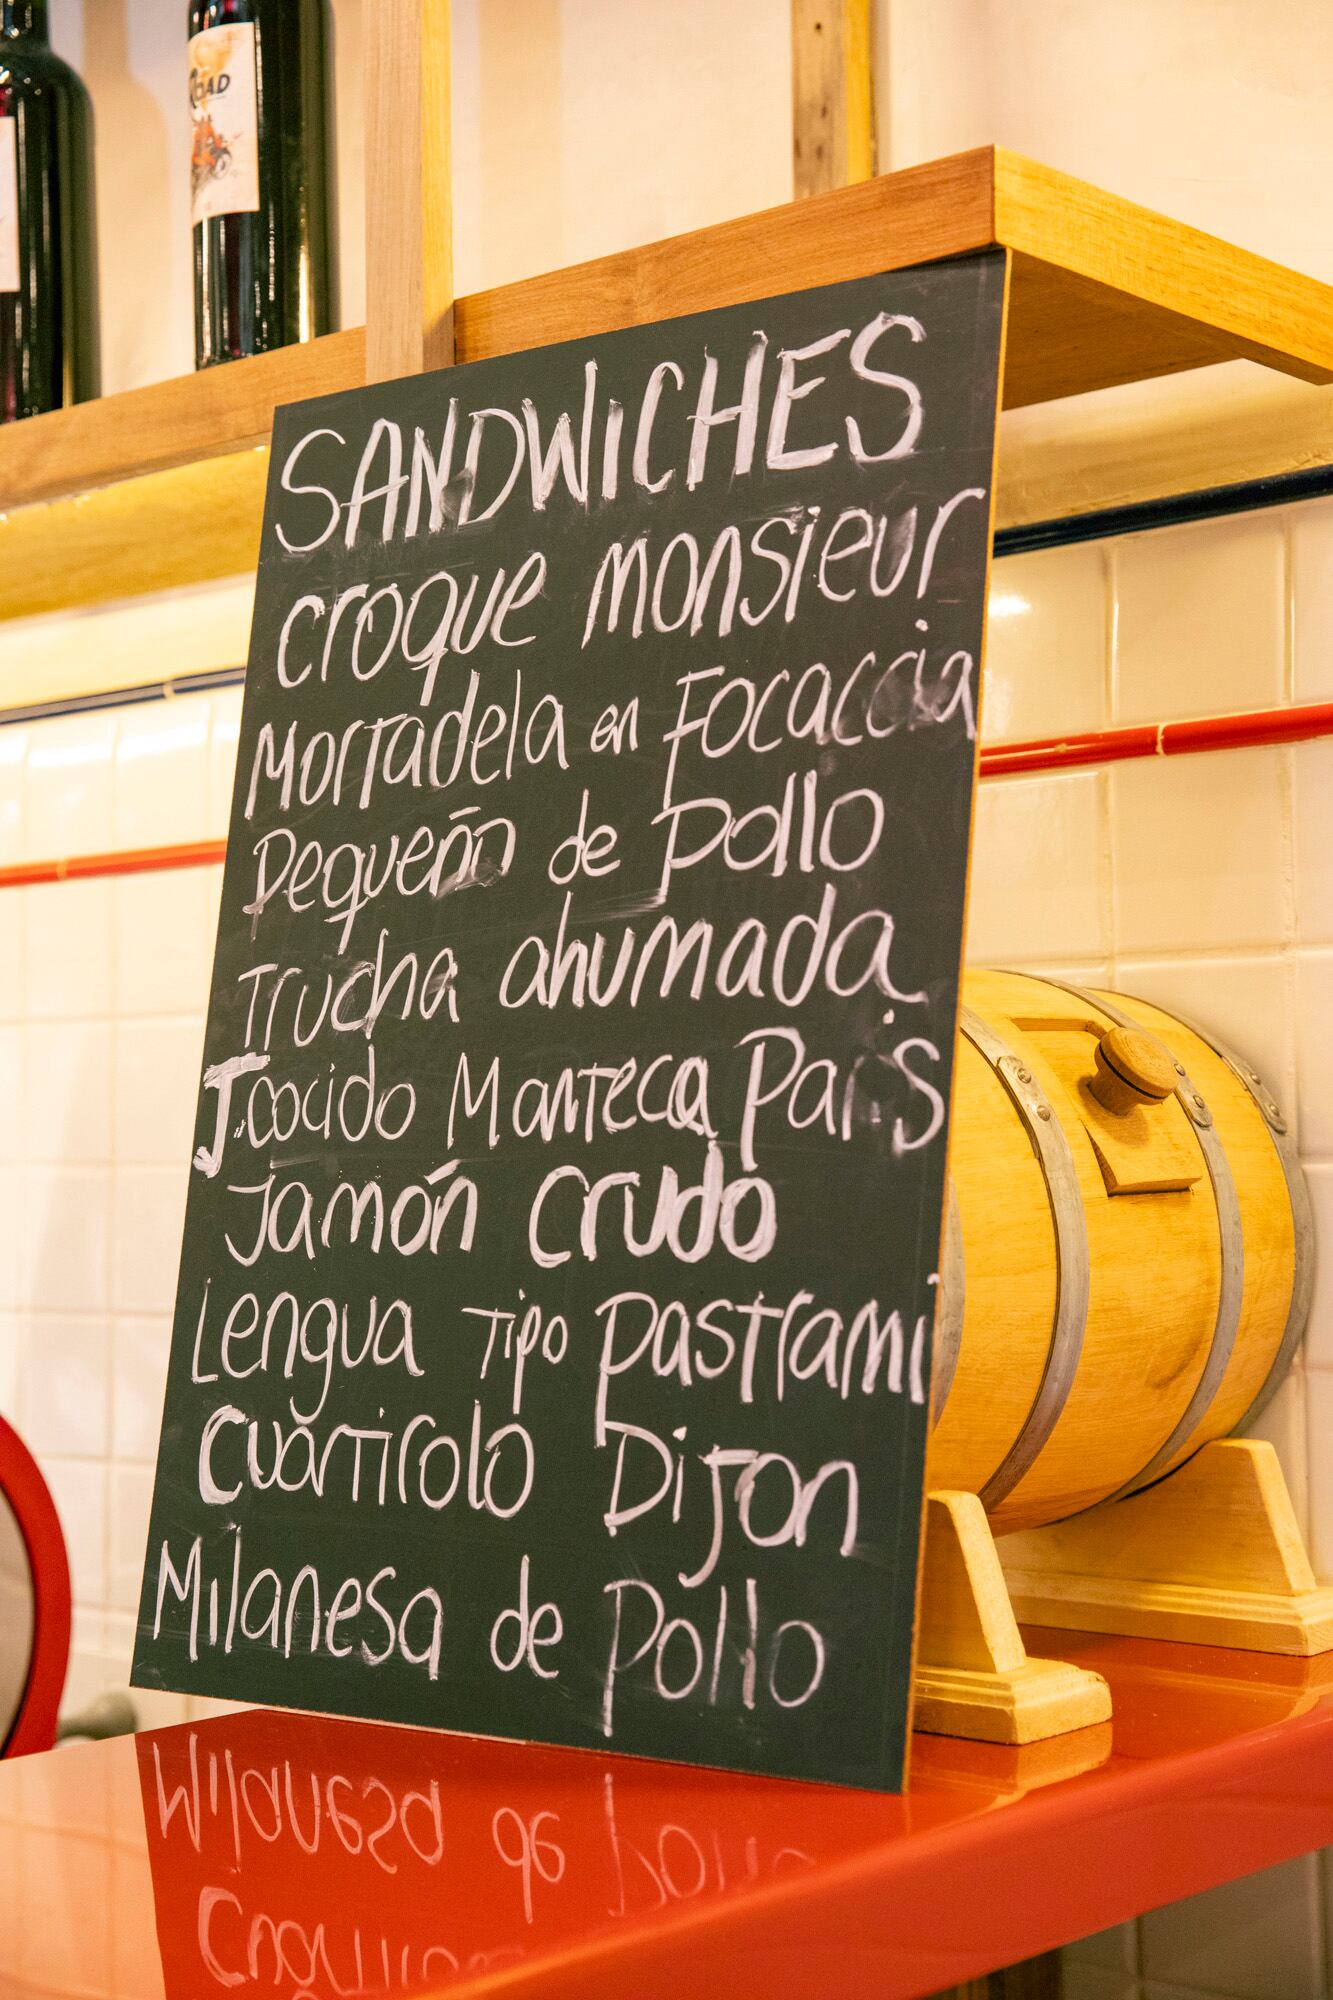 ROAD
SANDWICHES
croque monsieur
Mortadela en Focaccia
Pequeño de pollo
Trucha ahumada
J.cocido Manteca País
Jamón crudo
Lengua Tipo pastrami
Cuartirolo Dijon
Milanesa de pollo